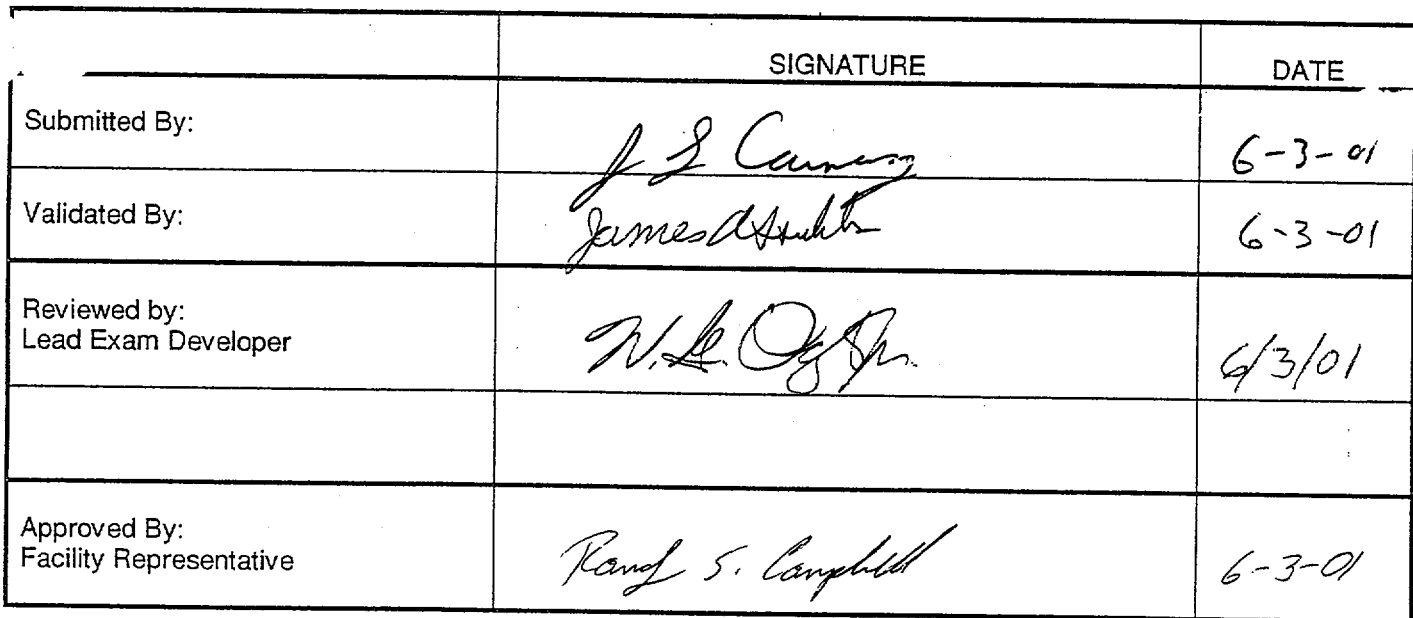 SIGNATURE DATE
Submitted By: J L 6-3-01
Validated By: James 6-3-01
Reviewed by:
Lead Exam Developer 6/3/01
Approved By:
Facility Representative S. Campbell 6-3-01